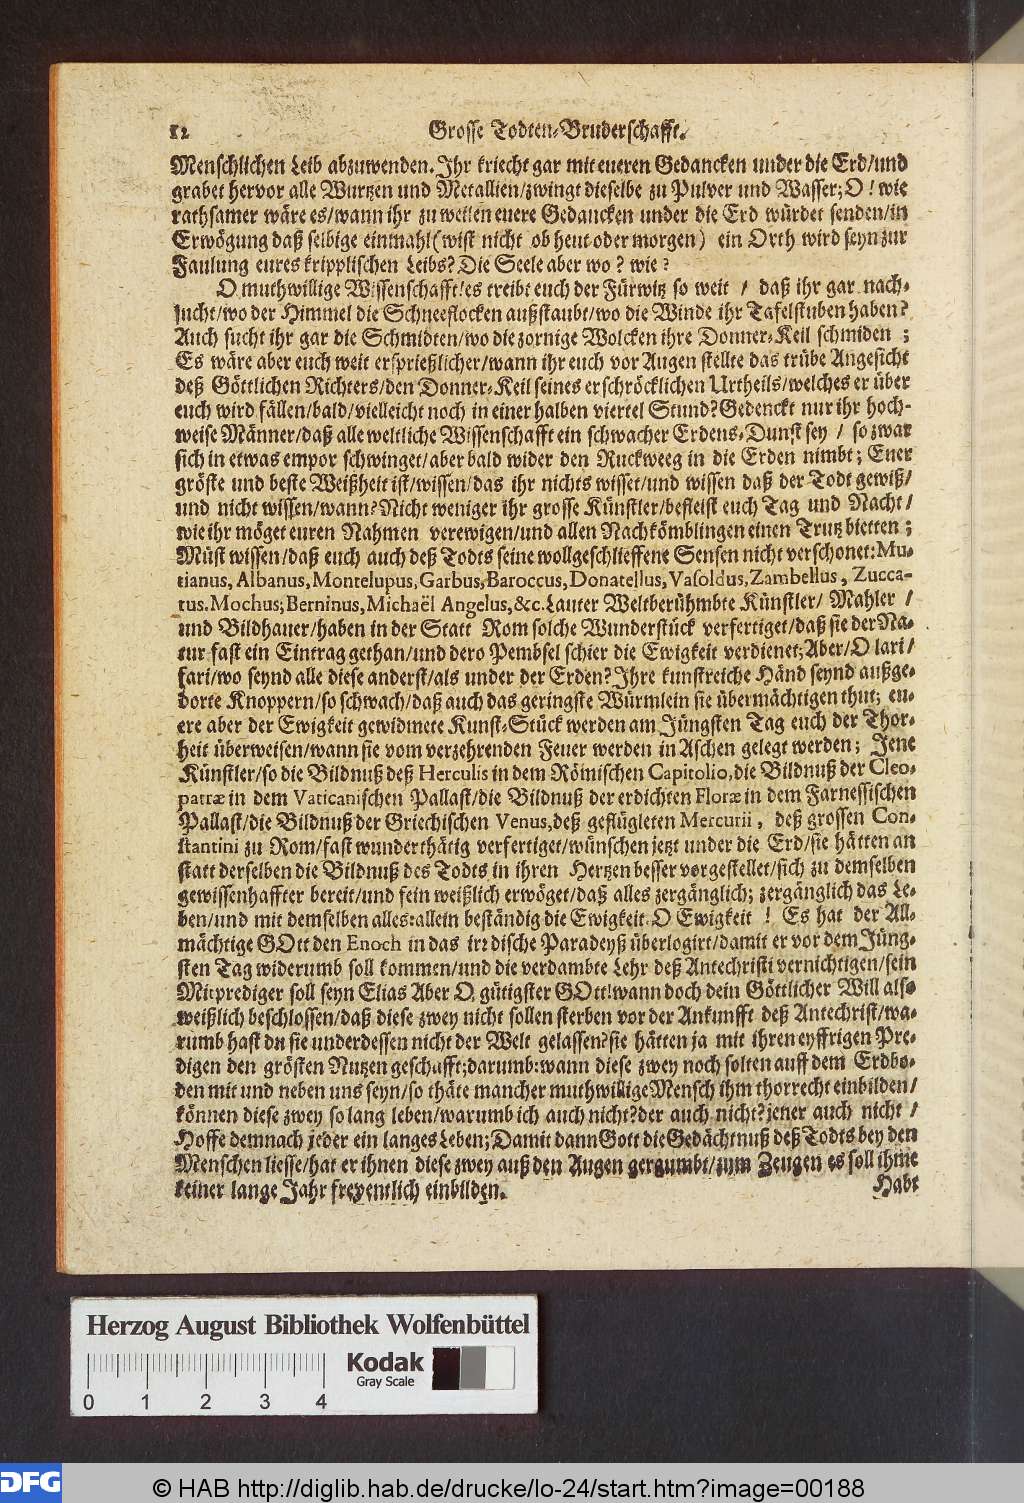 12 Grosse Todten-Bruderschafft.
Menschlichen Leib abzuwenden. Ihr kriecht gar mit eueren Gedancken under die Erd/und
grabet hervor alle Wurtzen und Metallien/zwingt dieselbe zu Pulver und Wasser; O! wie
rathsamer wäre es/wann ihr zu weilen euere Gedancken under die Erd würdet senden/in
Erwögung daß selbige einmahl (wist nicht ob heut oder morgen) ein Orth wird seyn zur
Faulung eures kripplischen Leibs? Die Seele aber wo? wie?
O muthwillige Wissenschafft! es treibt euch der Fürwitz so weit / daß ihr gar nach-
sucht/wo der Himmel die Schneeflocken außstaubt/wo die Winde ihr Tafelstuben haben?
Auch sucht ihr gar die Schmidten/wo die zornige Wolcken ihre Donner-Keil schmiden ;
Es wäre aber euch weit ersprießlicher/wann ihr euch vor Augen stellte das trübe Angesicht
deß Göttlichen Richters/den Donner-Keil seines erschröcklichen Urtheils/welches er über
euch wird fällen/bald/vielleicht noch in einer halben viertel Stund? Gedenckt nur ihr hoch-
weise Männer/daß alle weltliche Wissenschafft ein schwacher Erdens-Dunst sey / so zwar
sich in etwas empor schwinget/aber bald wider den Ruckweeg in die Erden nimbt; Euer
gröste und beste Weißheit ist/wissen/das ihr nichts wisset/und wissen daß der Todt gewiß/
und nicht wissen/wann? Nicht weniger ihr grosse Künstler/befleist euch Tag und Nacht /
wie ihr möget euren Nahmen verewigen/und allen Nachkömblingen einen Trutz bietten ;
Müst wissen/daß euch auch deß Todts seine wollgeschlieffene Sensen nicht verschonet: Mu-
tianus, Albanus, Montelupus, Garbus, Baroccus, Donatellus, Vasoldus, Zambellus, Zucca-
tus. Mochus, Berninus, Michaël Angelus, &c. Lauter Weltberühmbte Künstler/ Mahler /
und Bildhauer/haben in der Statt Rom solche Wunderstück verfertiget/daß sie der Na-
tur fast ein Eintrag gethan/und dero Pembsel schier die Ewigkeit verdienet; Aber/O lari/
fari/wo seynd alle diese anderst/als under der Erden? Ihre kunstreiche Händ seynd außge-
dorte Knoppern/so schwach/daß auch das geringste Würmlein sie übermächtigen thut; eu-
ere aber der Ewigkeit gewidmete Kunst-Stück werden am Jüngsten Tag euch der Thor-
heit überweisen/wann sie vom verzehrenden Feuer werden in Aschen gelegt werden; Jene
Künstler/so die Bildnuß deß Herculis in dem Römischen Capitolio, die Bildnuß der Cleo-
patræ in dem Vaticanischen Pallast/die Bildnuß der erdichten Floræ in dem Farnessischen
Pallast/die Bildnuß der Griechischen Venus, deß geflügleten Mercurii, deß grossen Con-
stantini zu Rom/fast wunderthätig verfertiget/wünschen jetzt under die Erd/sie hätten an
statt derselben die Bildnuß des Todts in ihren Hertzen besser vorgestellet/sich zu demselben
gewissenhaffter bereit/und fein weißlich erwöget/daß alles zergänglich; zergänglich das Le-
ben/und mit demselben alles: allein beständig die Ewigkeit. O Ewigkeit ! Es hat der All-
mächtige GOtt den Enoch in das irrdische Paradeyß überlogirt/damit er vor dem Jüng-
sten Tag widerumb soll kommen/und die verdambte Lehr deß Antechristi vernichtigen/sein
Mitprediger soll seyn Elias Aber O gütigster GOtt! wann doch dein Göttlicher Will also
weißlich beschlossen/daß diese zwey nicht sollen sterben vor der Ankunfft deß Antechrist/wa-
rumb hast du sie underdessen nicht der Welt gelassen? sie hätten ja mit ihren eyffrigen Pre-
digen den grösten Nutzen geschafft; darumb: wann diese zwey noch solten auff dem Erdbo-
den mit und neben uns seyn/so thäte mancher muthwillige Mensch ihm thorrecht einbilden/
können diese zwey so lang leben/warumb ich auch nicht? der auch nicht? jener auch nicht /
Hoffe demnach jeder ein langes Leben; Damit dann Gott die Gedächtnuß deß Todts bey den
Menschen liesse/hat er ihnen diese zwey auß den Augen geraumbt/zum Zeugen es soll ihme
keiner lange Jahr freventlich einbilden.
Habt
Herzog August Bibliothek Wolfenbüttel
Kodak
Gray Scale
0 1 2 3 4
DFG © HAB http://diglib.hab.de/drucke/lo-24/start.htm?image=00188